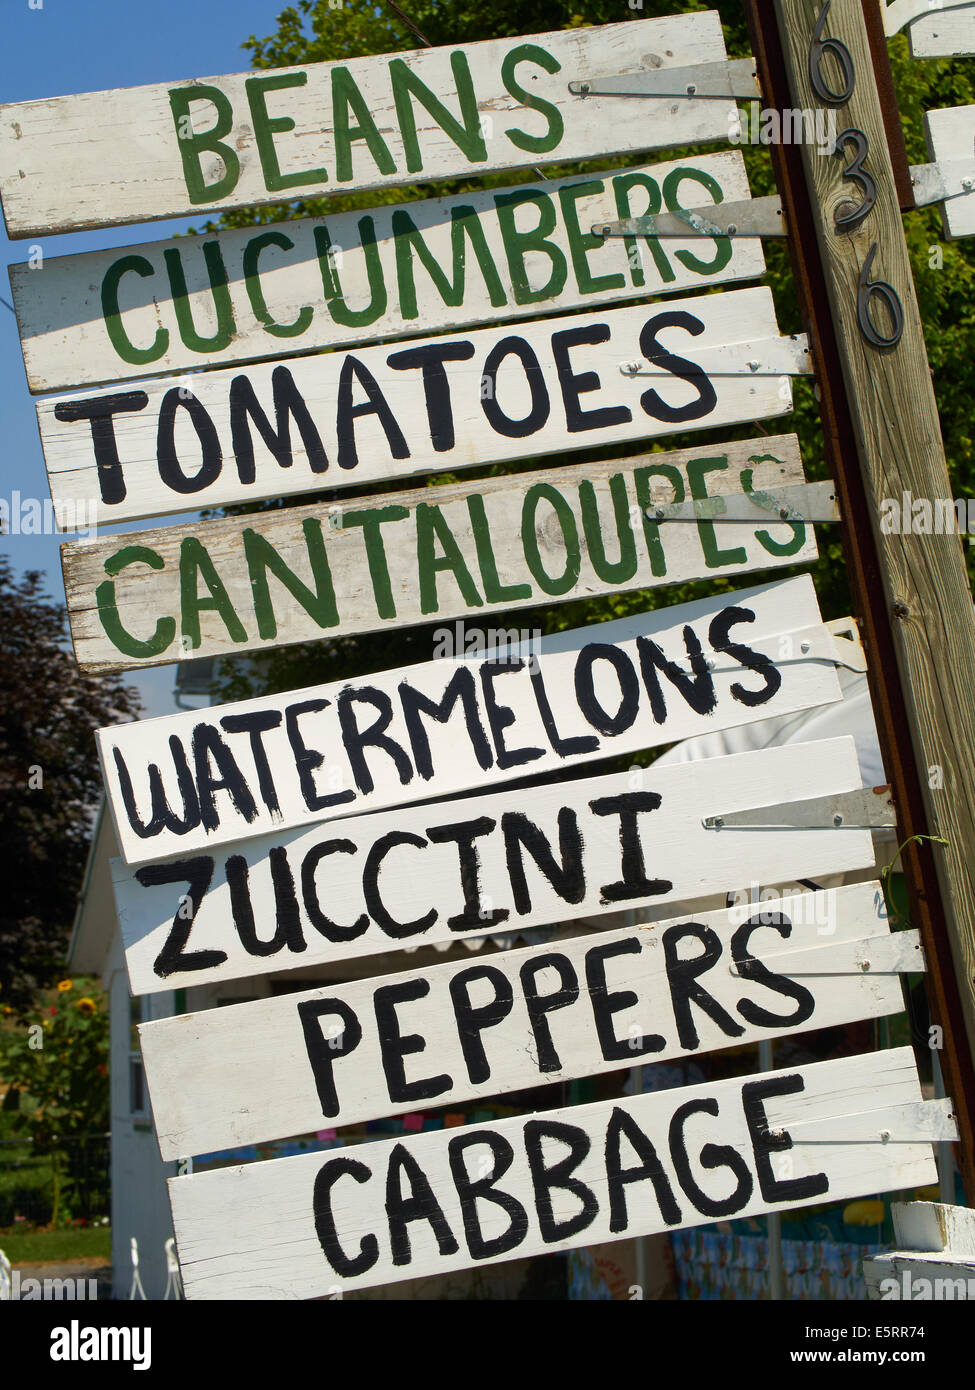 BEANS
CUCUMBERS
TOMATOES
CANTALOUPES
WATERMELONS
ZUCCINI
PEPPERS
CABBAGE
6366
alamy stock photo
E5RR74
www.alamy.com